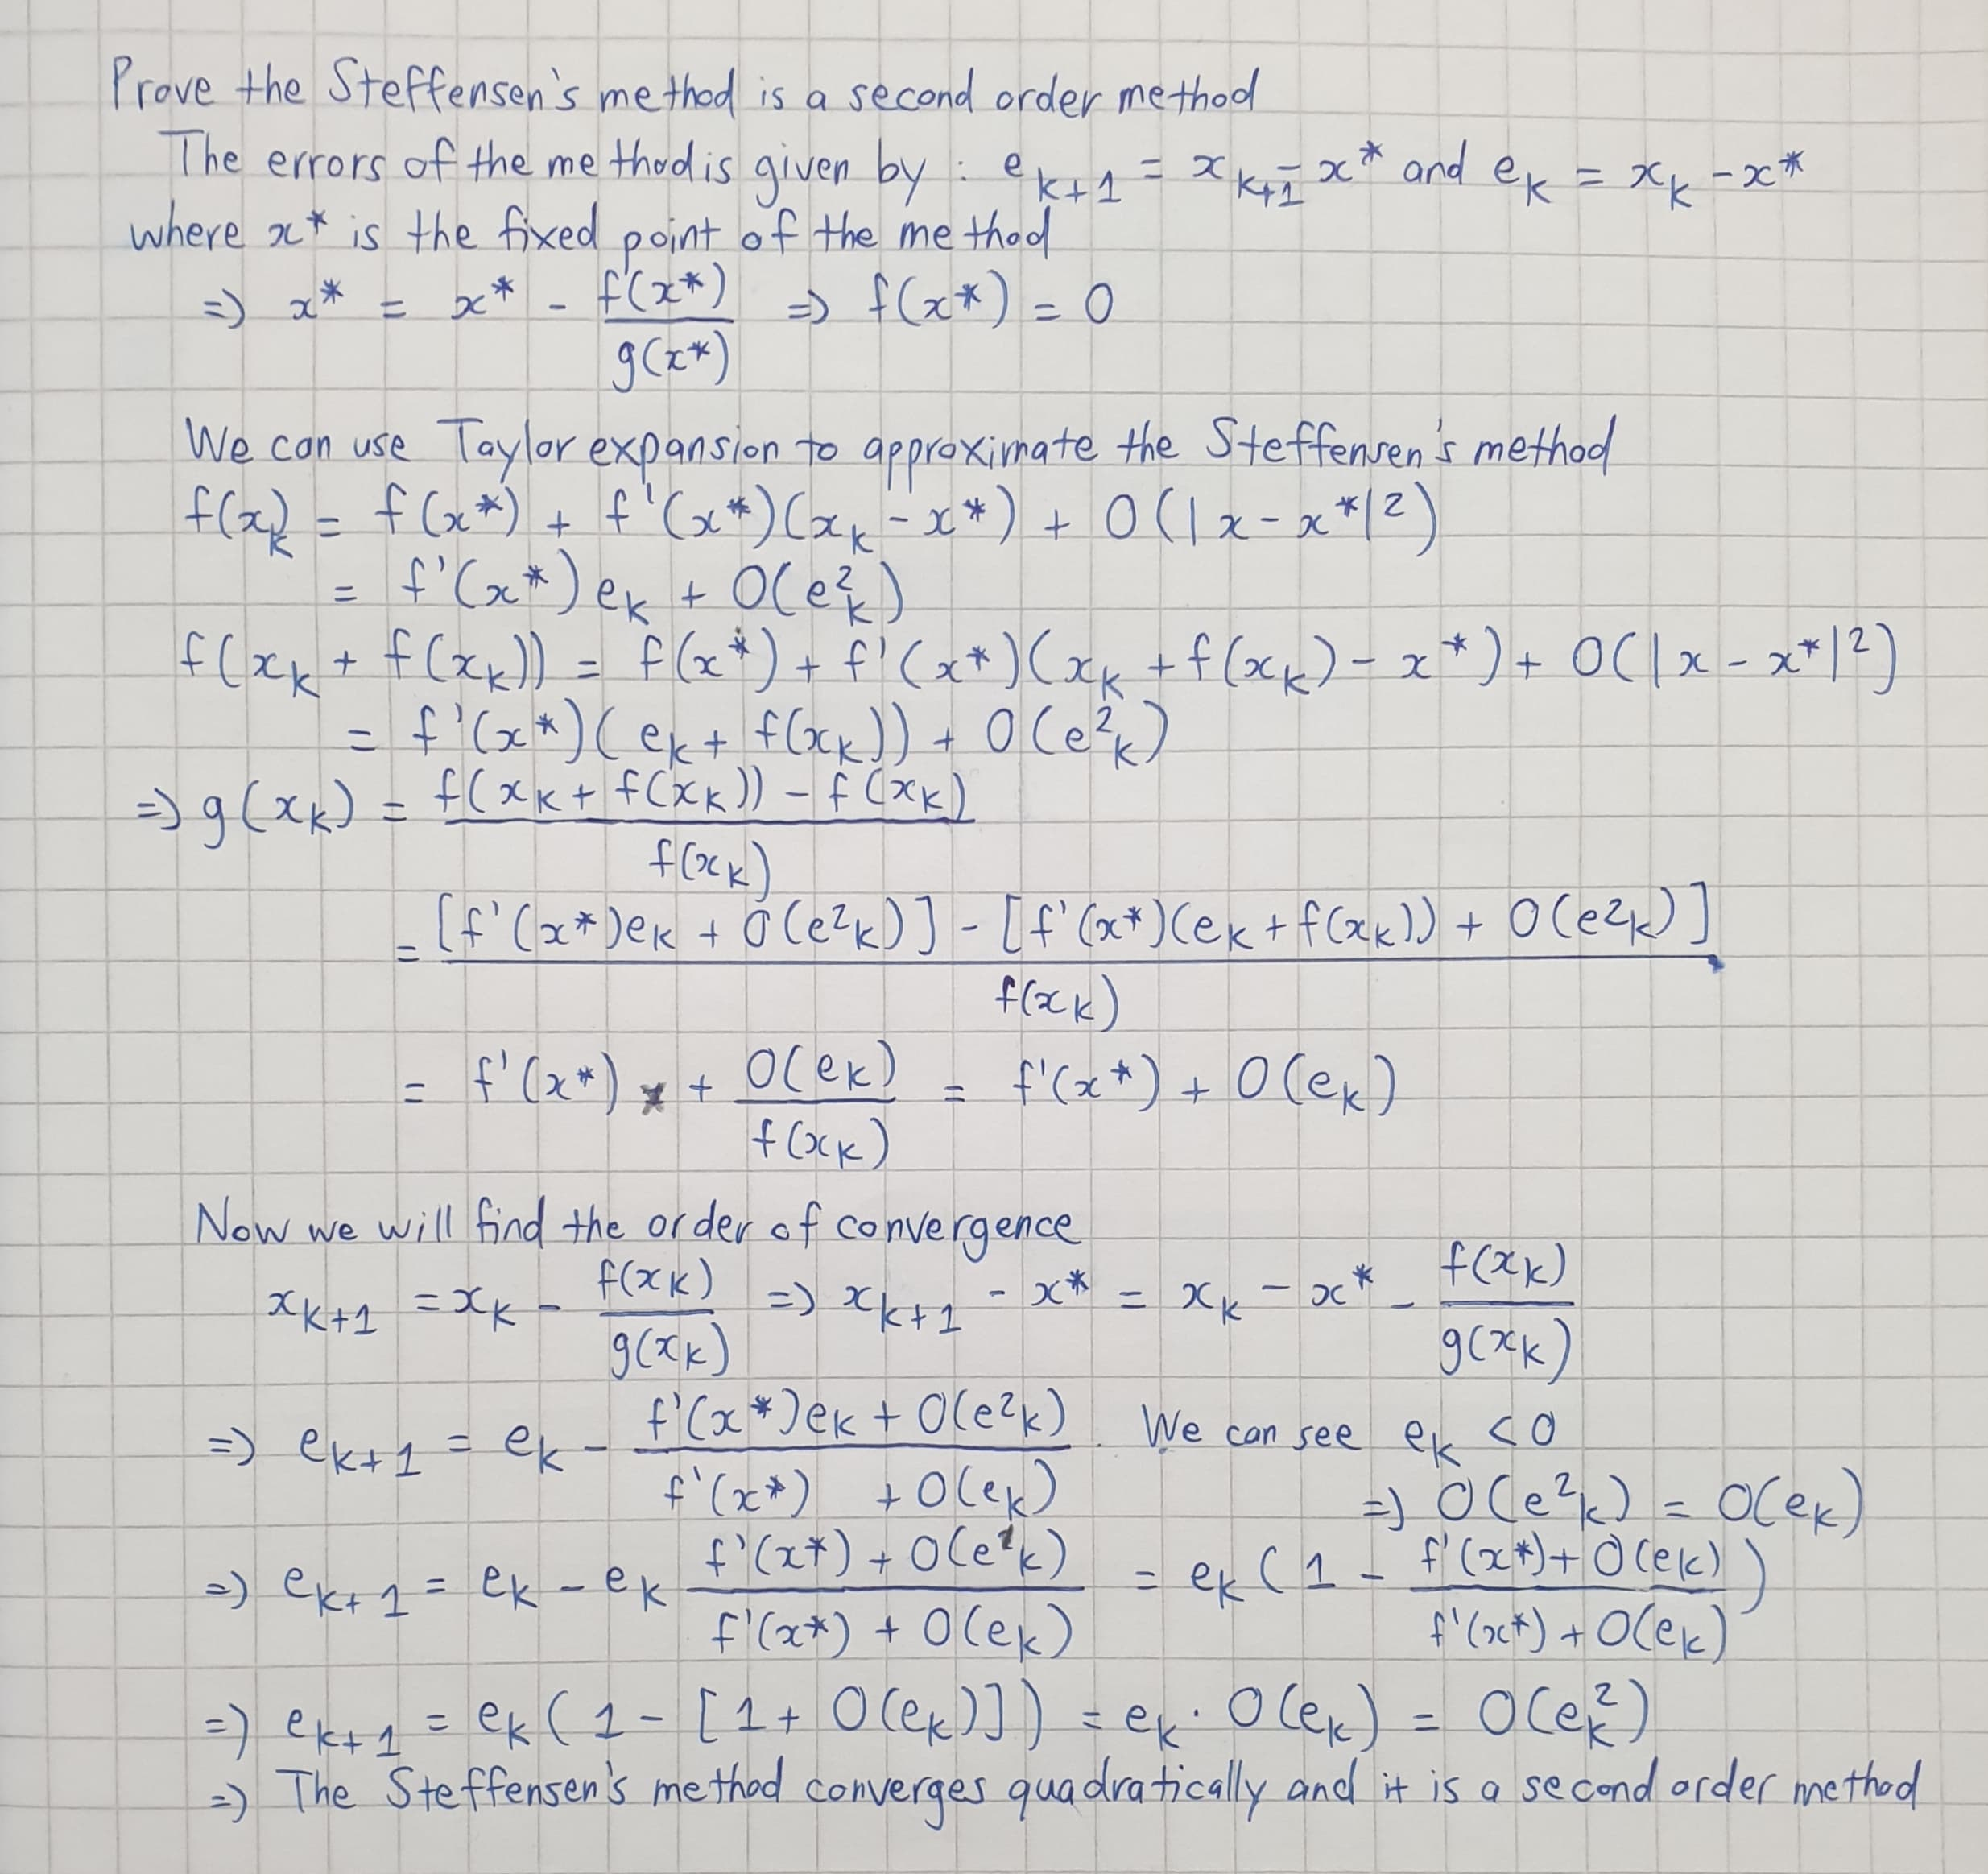 Prove the Steffensen's method is a second order method
The errors of the method is given by : e_{k+1} = x_{k+1} - x* and e_k = x_k - x*
where x* is the fixed point of the method
=> x* = x* - f(x*)/g(x*) => f(x*) = 0
We can use Taylor expansion to approximate the Steffensen's method
f(x_k) = f(x*) + f'(x*)(x_k - x*) + O(|x - x*|^2)
= f'(x*) e_k + O(e_k^2)
f(x_k + f(x_k)) = f(x*) + f'(x*)(x_k + f(x_k) - x*) + O(|x - x*|^2)
= f'(x*)(e_k + f(x_k)) + O(e_k^2)
=> g(x_k) = (f(x_k + f(x_k)) - f(x_k))/f(x_k)
= ([f'(x*)e_k + O(e^2_k)] - [f'(x*)(e_k + f(x_k)) + O(e^2_k)])/f(x_k)
= f'(x*) + O(e_k)/f(x_k) = f'(x*) + O(e_k)
Now we will find the order of convergence
x_{k+1} = x_k - f(x_k)/g(x_k) => x_{k+1} - x* = x_k - x* - f(x_k)/g(x_k)
=> e_{k+1} = e_k - (f'(x*)e_k + O(e^2_k))/(f'(x*) + O(e_k)). We can see e_k < 0
=> O(e^2_k) = O(e_k)
=> e_{k+1} = e_k - e_k (f'(x*) + O(e^2_k))/(f'(x*) + O(e_k)) = e_k (1 - (f'(x*) + O(e_k))/(f'(x*) + O(e_k)))
=> e_{k+1} = e_k (1 - [1 + O(e_k)]) = e_k · O(e_k) = O(e_k^2)
=> The Steffensen's method converges quadratically and it is a second order method